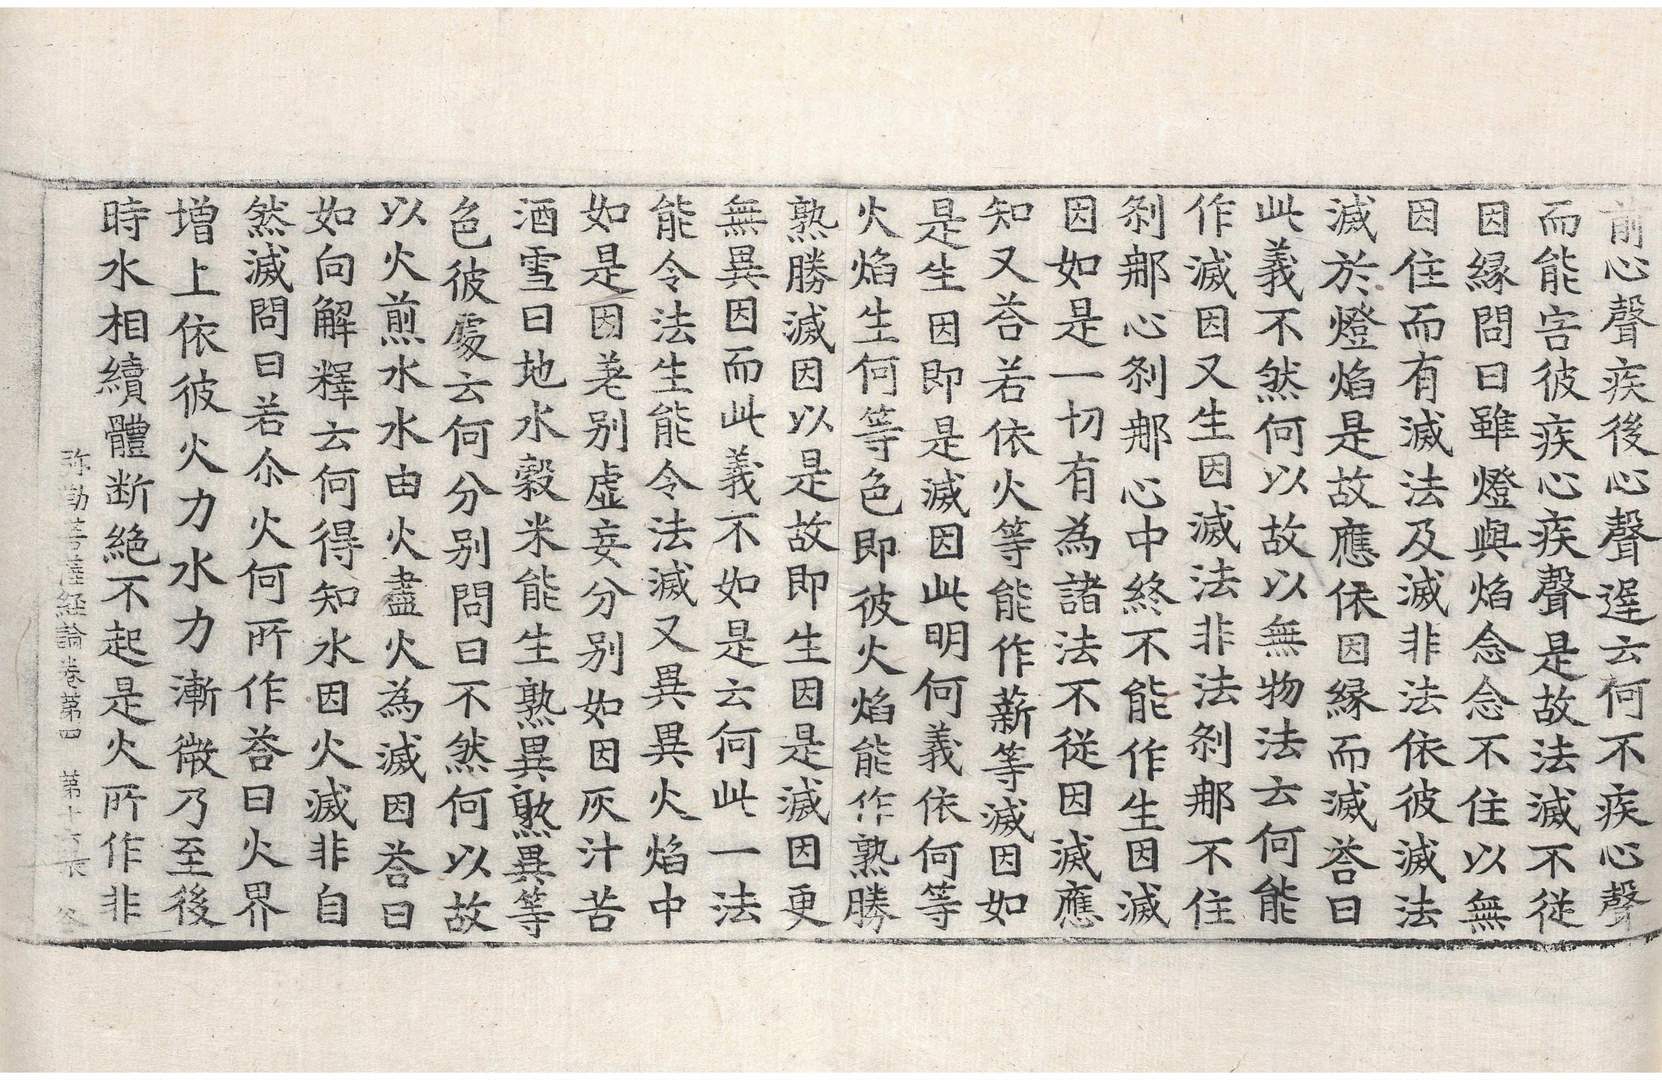 前心聲疾後心聲遅云何不疾心聲
而能害彼疾心疾聲是故法滅不從
因緣問曰雖燈與焰念念不住以無
因住而有滅法及滅非法依彼滅法
滅於燈焰是故應依因緣而滅荅曰
此義不然何以故以無物法云何能
作滅因又生因滅法非法刹那不住
刹那心刹那心中終不能作生因滅
因如是一切有為諸法不從因滅應
知又荅若依火等能作薪等滅因如
是生因即是滅因此明何義依何等
火焰生何等色即彼火焰能作熟勝
熟勝滅因以是故即生因是滅因更
無異因而此義不如是云何此一法
能令法生能令法滅又異異火焰中
如是因差別虛妄分別如因灰汁苦
酒雪日地水糓米能生熟異熟異等
色彼處云何分別問曰不然何以故
以火煎水水由火盡火為滅因荅曰
如向解釋云何得知水因火滅非自
然滅問曰若尒火何所作荅曰火界
增上依彼火力水力漸微乃至後
時水相續體断絕不起是火所作非
弥勒菩薩経論卷第四　第十六張　冬